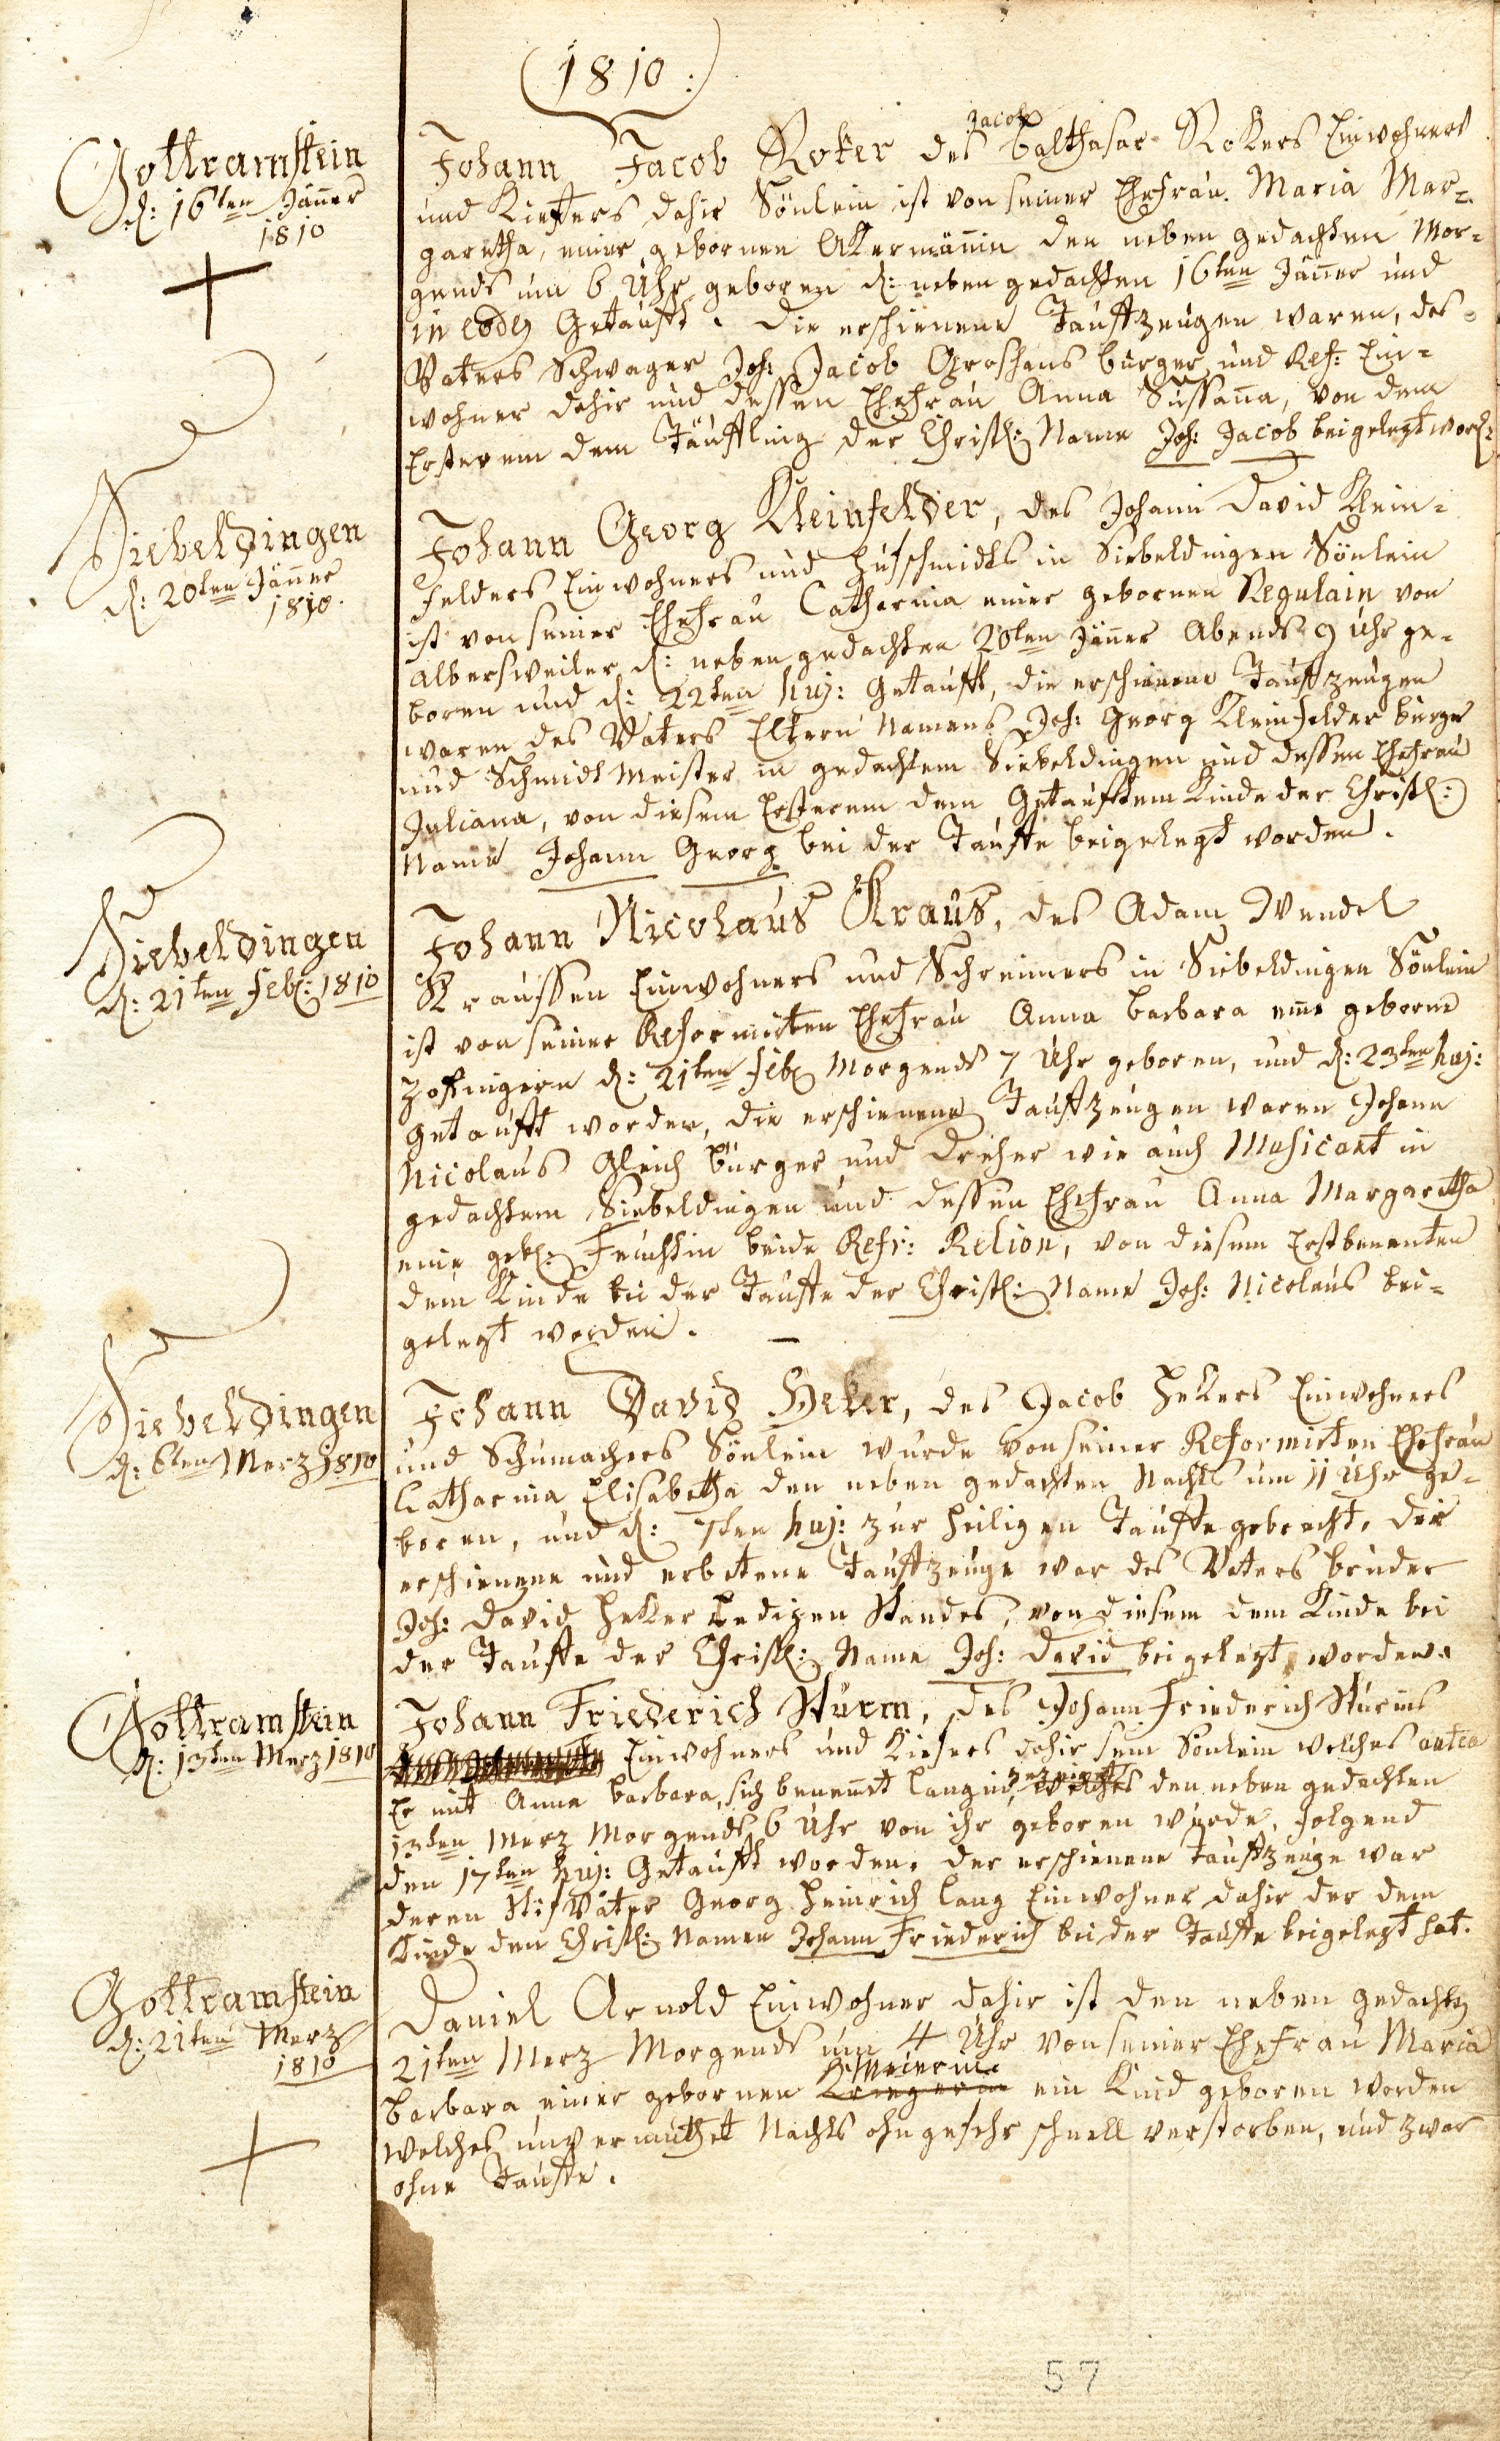 1810:
Gottramstein
d: 16ten Jäner
1810
Johann Jacob Roker des Jacob Balthasar Rokers Einwohners
und Kiefers dahir Sönlein ist von seiner Ehefrau Maria Mar-
garetha, einer gebornen Akermännin den neben gedachten Mor-
gends um 6 Uhr geboren d: neben gedachten 16ten Jäner und
in eod Getaufft. die erschienene Tauffzeugen waren, des
Vaters Schwager Joh: Jacob Groshans burger und Ref: Ein-
wohner dahir und dessen Ehefrau Anna Sussana, von dem
Ersterem dem Täuffling der Christl: Name Joh: Jacob beigelegt word:
Siebeldingen
d: 20ten Jänner
1810.
Johann Georg Kleinfelder, des Johann David Klein-
felders Einwohners und Hufschmidts in Siebeldingen Sönlein
ist von seiner Ehefrau Catharina einer gebornen Regulain von
Albersweiler d: neben gedachten 20ten Jäner Abends 9 Uhr ge-
boren und d: 22ten huj: Getaufft, die erschienene Tauffzeugen
waren des Vaters Eltern Namens Joh: Georg Kleinfelder burger
und Schmidt Meister in gedachtem Siebeldingen und dessen Ehefrau
Juliana, von diesem Ersterem dem Getaufftem Kinde der Christl:
Name Johann Georg bei der Tauffe beigelegt worden.
Siebeldingen
d: 21ten Feb: 1810
Johann Nicolaus Kraus, des Adam Wendel
Kraussen Einwohners und Schreiners in Siebeldingen Sönlein
ist von seiner Reformirten Ehefrau Anna Barbara eine geborne
Zofingern d: 21ten Feb Morgends 7 Uhr geboren, und d: 23ten huj:
Getaufft worden, die erschienene Tauffzeugen waren Johann
Nicolaus Gleich burger und Dreher wie auch Musicant in
gedachtem Siebeldingen und dessen Ehefrau Anna Margaretha
eine geb: Feuchtin beide Refr: Relion, von diesem Erstbenenten
dem Kinde bei der Tauffe der Christl: Name Joh: Nicolaus bei-
gelegt worden.
Siebeldingen
d: 6ten Merz 1810
Johann David Heker, des Jacob Hekers Einwohners
und Schumachers Sönlein wurde von seiner Reformirten Ehefrau
Catharina Elisabetha den neben gedachten Nachts um 11 Uhr ge-
boren, und d: 7ten huj: zur heiligen Tauffe gebracht. der
erschienene und erbetene Tauffzeuge war des Vaters bruder
Joh: David Heker Ledigen Standes, von diesem dem Kinde bei
der Tauffe der Christl: Name Joh: David beigelegt worden.
Gottramstein
d: 13ten Merz 1810
Johann Friederich Sturm, des Johann Friederich Sturms
Einwohners und Kiefers dahir sein Sönlein welches antea
Er mit Anna Barbara, sich benennt Langin, gezeugt den neben gedachten
13ten Merz Morgends 6 Uhr von ihr geboren wurde, folgend
den 17ten huj: Getaufft worden. der erschienene Tauffzeuge war
deren Stif Vater Georg Heinrich Lang Einwohner dahir der dem
Kinde den Christl: Namen Johann Friederich bei der Tauffe beigelegt hat.
Gottramstein
d: 21ten Merz
1810
Daniel Arnold Einwohner dahir ist den neben gedachten
21ten Merz Morgends um 4 Uhr von seiner Ehefrau Maria
Barbara einer gebornen Meierin ein Kind geboren worden
welches unvermuthet Nachts ohngefehr schnell verstorben, und zwar
ohne Tauffe.
57